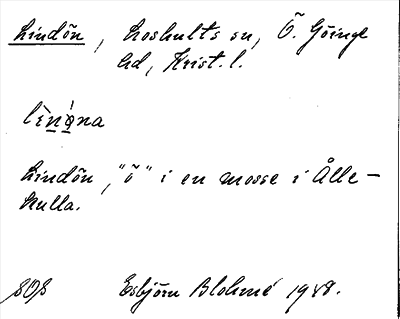 Lindön, Loshults sn, Ö. Göinge
hd, Krist. l.
Lindön, "ö" i en mosse i Ålle-
kulla.
SOS Esbjörn Blohmé 1948.